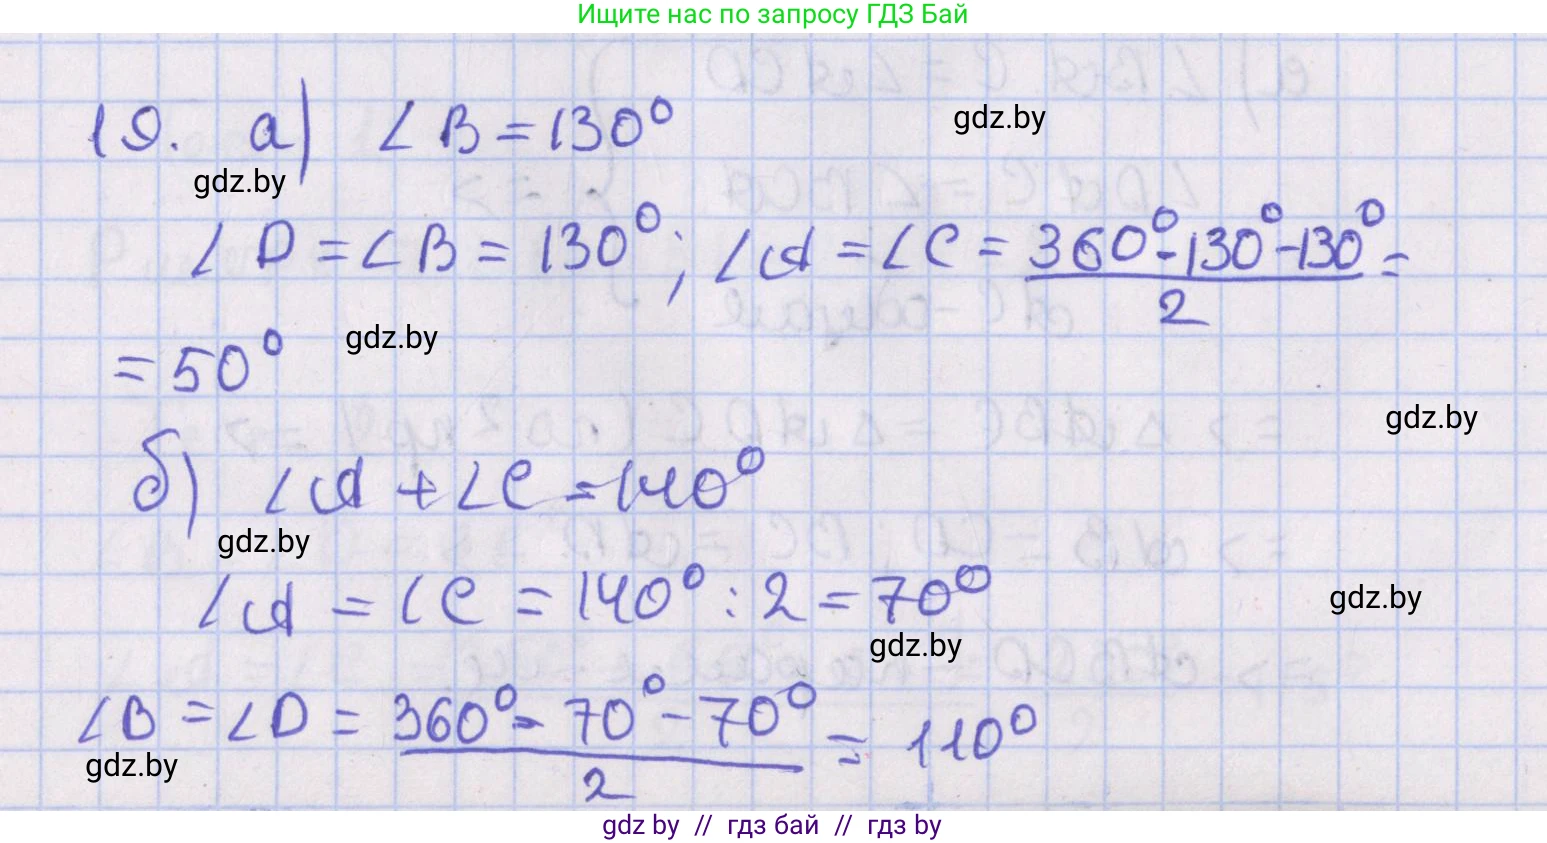 Ищите нас по запросу ГДЗ Бай
19. а) ∠B = 130°
gdz.by
gdz.by
∠D = ∠B = 130°; ∠A = ∠C = (360° - 130° - 130°)/2 =
= 50°
gdz.by
gdz.by
б) ∠A + ∠C = 140°
gdz.by
∠A = ∠C = 140° : 2 = 70°
gdz.by
gdz.by
∠B = ∠D = (360° - 70° - 70°)/2 = 110°
gdz.by
gdz by // гдз бай // гдз by